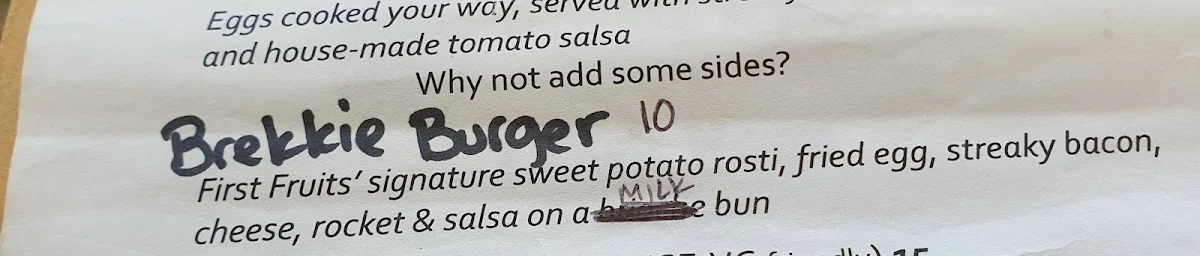 Eggs cooked your way, served with
and house-made tomato salsa
Why not add some sides?
Brekkie Burger 10
First Fruits' signature sweet potato rosti, fried egg, streaky bacon,
MILK
cheese, rocket & salsa on a bun